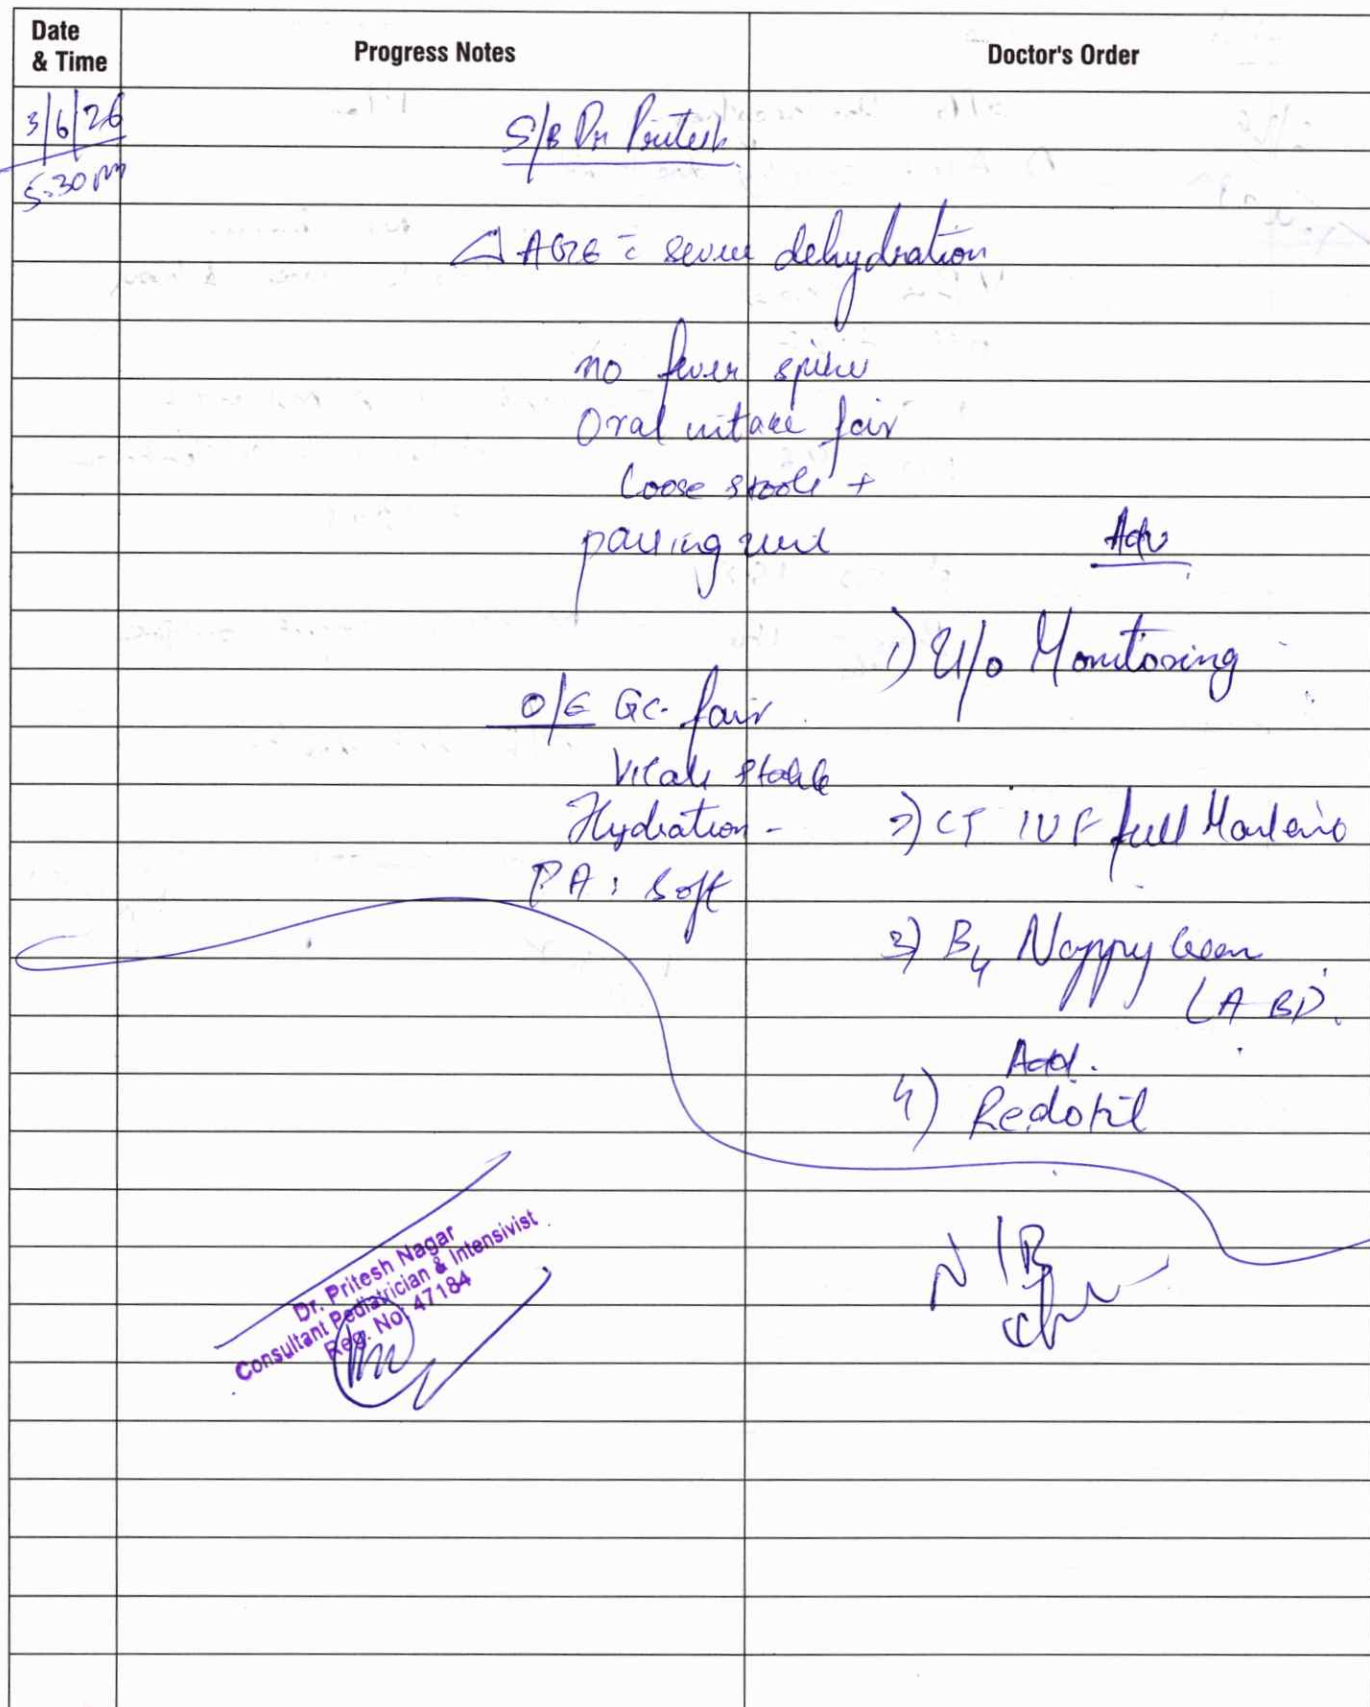 Date & Time
Progress Notes
Doctor's Order
3/6/26
5:30 pm
S/B Dr Pritesh
Δ AGE c̄ severe dehydration
no fever spike
Oral intake fair
Loose stools +
passing urine
Adv
1) U/o Monitoring
O/E GC- fair
Vitals stable
Hydration -
2) CT IVF full
PA: soft
3) B4 Nappy
LA BD.
Add.
4) Redotil
Dr. Pritesh Nagar
Consultant Pediatrician & Intensivist
Reg. No: 47184